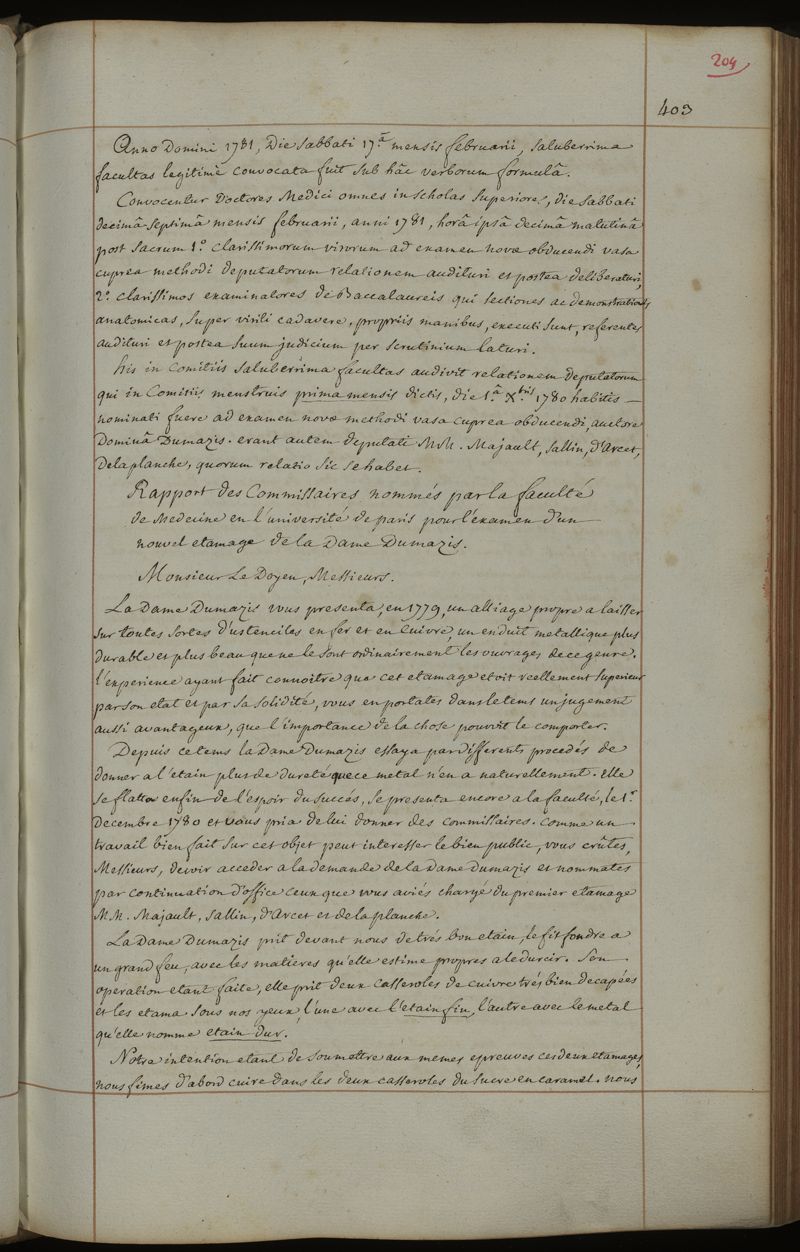 204
403
Anno Domini 1781, Die Sabbati 17.â mensis februarii, Saluberrima
facultas legitimè convocata fuit sub hâc verborum formulâ.
Convocentur Doctores Medici omnes in scholas Superiores, die Sabbati
decimâ Septimâ mensis februarii, anni 1781, horâ ipsâ decimâ matutinâ
post Sacrum 1.° clarissimorum virorum ad examen novæ obducendi vasa
cuprea methodi deputatorum relationem audituri et postea deliberaturi,
2.° clarissimos examinatores de Baccalaureis qui sectiones ac demonstrationes
anatomicas, super virili cadavere, propriis manibus, executi sunt, referentes
audituri et postea suum judicium per scrutinium laturi.
his in Comitiis Saluberrima facultas audivit relationem deputatorum
qui in Comitiis menstruis prima mensis dictis, die 1.â Xbris 1780 habitis —
nominati fuere ad examen novæ methodi vasa cuprea obducendi, auctore
Dominâ Dumazis. erant autem deputati MM. Majault, Sallin, d'Arcet,
Delaplanche, quorum relatio sic se habet.
Rapport des Commissaires nommés par la faculté
de Medecine en l'université de paris pour l'examen d'un
nouvel etamage de la Dame Dumazis.
Monsieur Le Doyen, Messieurs.
La Dame Dumazis vous presenta, en 1779, un alliage propre a laisser
sur toutes sortes d'ustenciles en fer et en Cuivre, un enduit metallique plus
durable et plus beau que ne le sont ordinairement les ouvrages de ce genre.
l'experience ayant fait connoitre que cet etamage etoit reellement superieur
par son etat et par sa solidité, vous en portates dans le tems un jugement
aussi avantageux, que l'importance de la chose pouvoit le comporter.
Depuis ce tems la Dame Dumazis essaya par differents procedés de
donner a l'etain plus de dureté que ce metal n'en a naturellement. Elle
se flatta enfin de l'espoir du succés, se presenta encore a la faculté, le 1.er
Decembre 1780 et vous pria de lui donner des commissaires. comme un
travail bien fait sur cet objet peut interesser le bien public, vous crûtes,
Messieurs, devoir acceder a la demande de la Dame dumazis et nommates
par continuation d'office ceux que vous aviés chargé du premier etamage
M.M. Majault, Sallin, d'Arcet et de la planche.
La Dame Dumazis prit devant nous de trés bon etain, le fit fondre a
un grand feu, avec les matieres qu'elle estime propres a le durcir. Son
operation etant faite, elle prit deux Casseroles de cuivre trés bien decapées
et les etama sous nos yeux, l'une avec l'etain fin, l'autre avec le metal
qu'elle nomme etain dur.
Notre intention etant de soumettre aux memes epreuves ces deux etamages,
nous fimes d'abord cuire dans les deux casseroles du sucre en caramel. nous